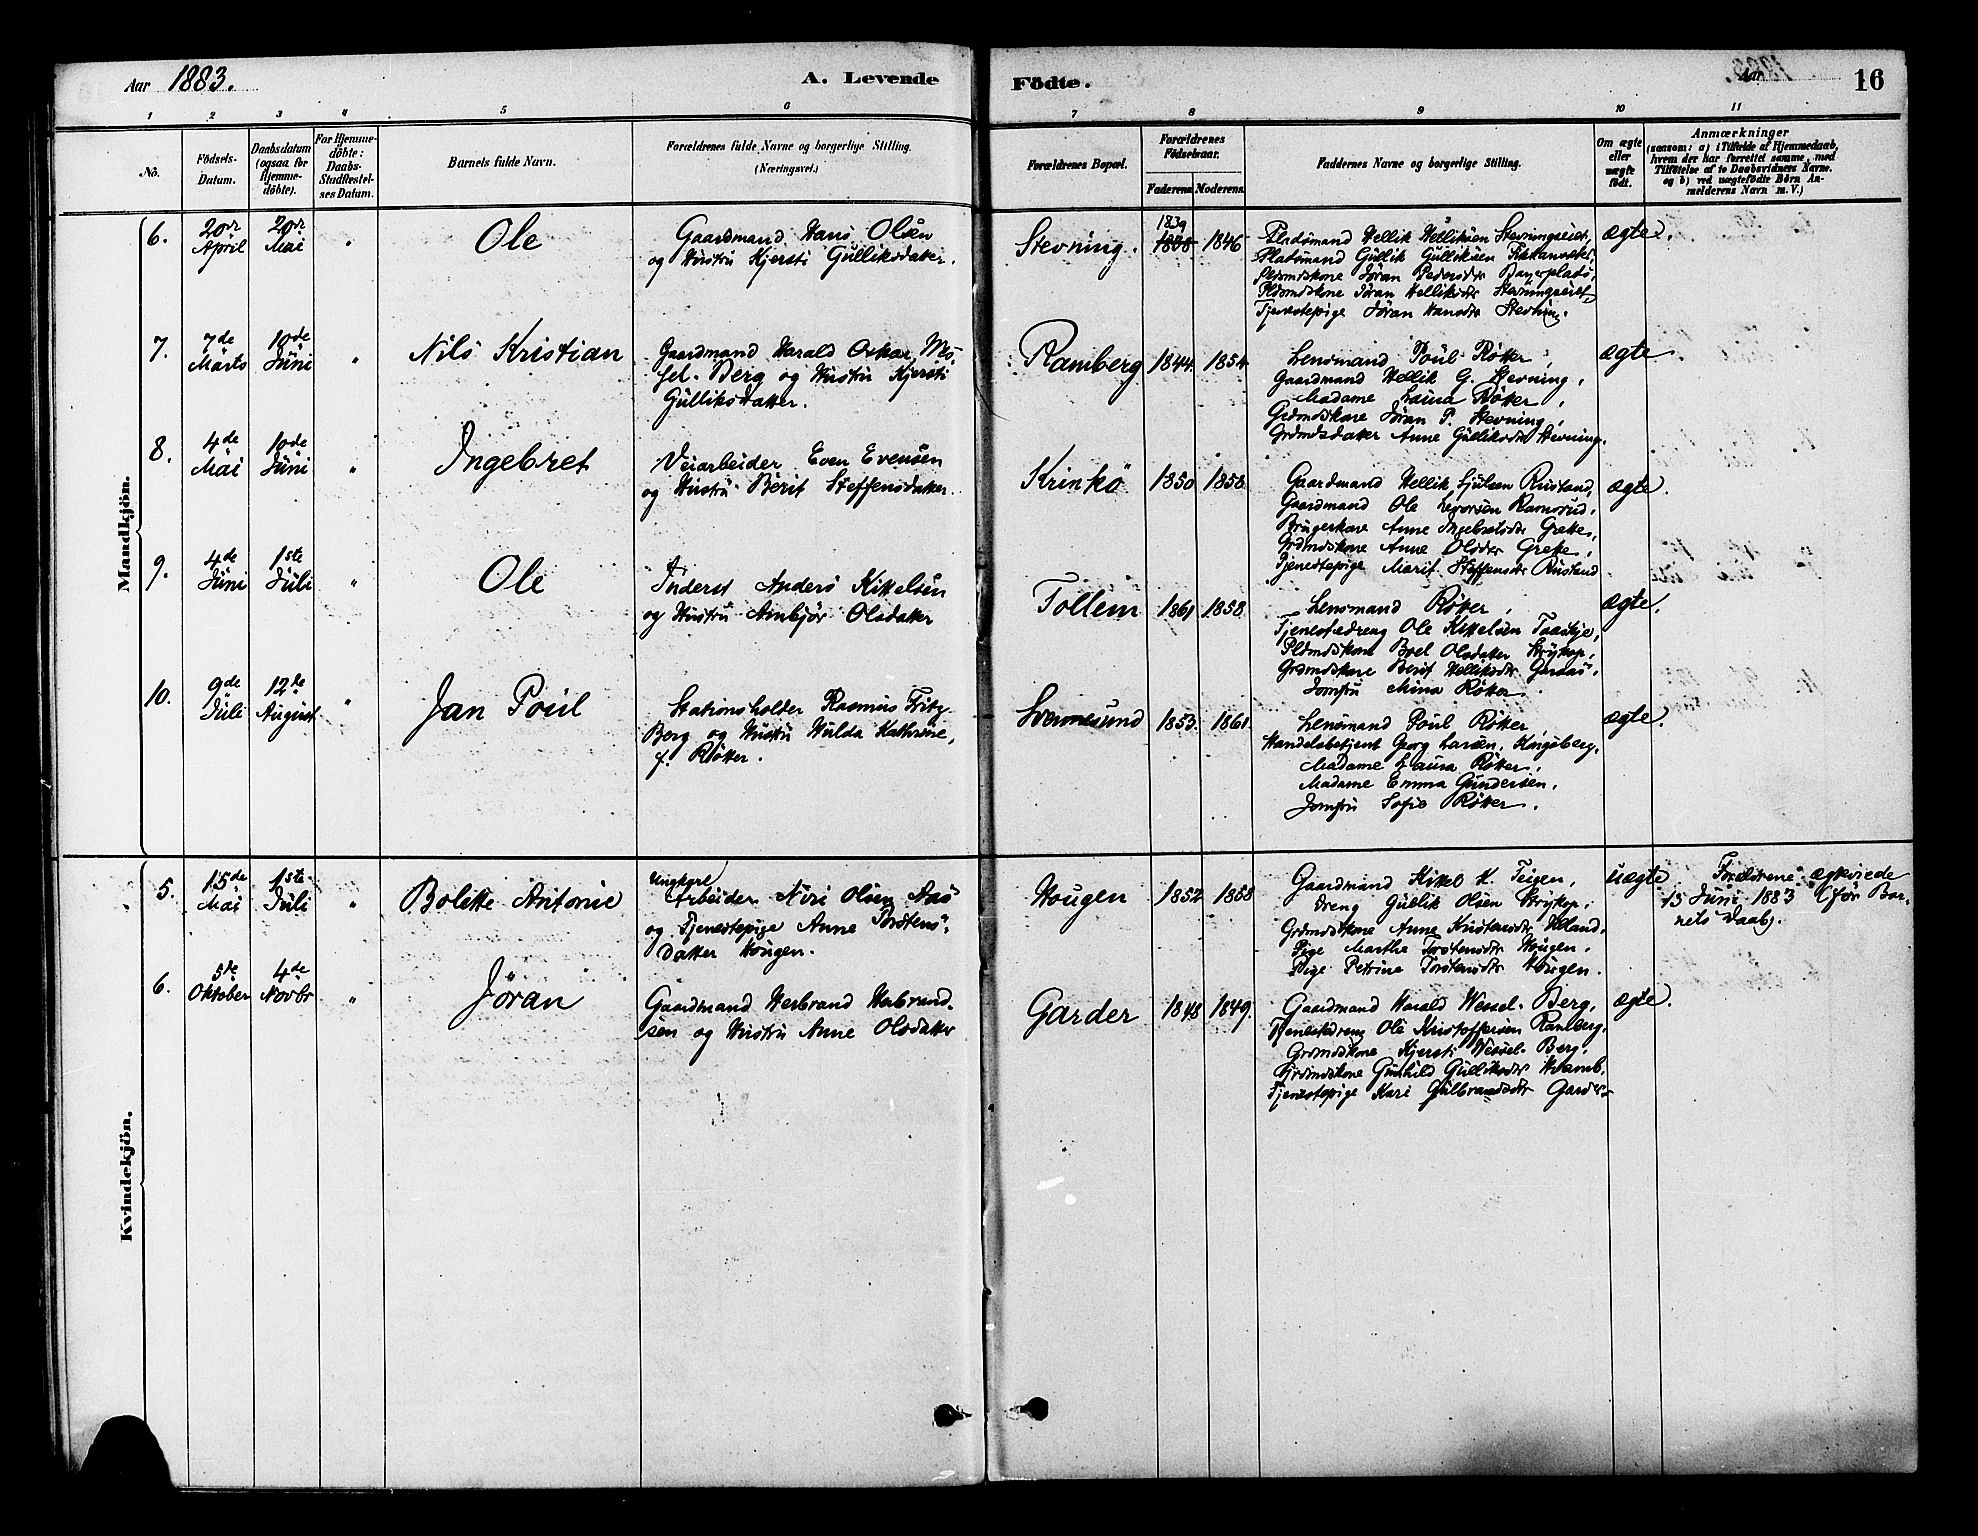 Aar 1883.
A. Levende
Födte.
Aar
16
1 2 3 4 5 6 7 8 9 10 11
No.
Födsels-Datum.
Daabsdatum (ogsaa for Hjemmedöbte).
For Hjemmedöbte: Daabs-Stadfæstelses Datum.
Barnets fulde Navn.
Forældrenes fulde Navne og borgerlige Stilling.
(Næringsvei.)
Forældrenes Bopæl.
Forældrenes Födselsaar.
Faderens. Moderens.
Faddernes Navne og borgerlige Stilling.
Om ægte eller uægte födt.
Anmærkninger
(saasom: a) i Tilfælde af Hjemmedaab, hvem der har forrettet samme, med Tilföielse af to Daabsvidners Navne. og b) ved uægtefödte Börn Anmelderens Navn m. V.)
Mandkjön.
6. 20de April 20de Mai " Ole
Gaardmand Hans Olsen
og Hustru Kjersti Gulliksdatter.
Stevning. 1839 1846
Pladsmand Hellik Helliksen Stevningseiet,
Pladsmand Gullik Gulliksen
Pldsmdskone Jøran Pedersdtr
Pldsmdskone Jøran Helliksdtr Stevningseiet,
Tjenestepige Jøran Hansdtr Stevning.
ægte.
7. 7de Marts 10de Juni " Nils Kristian
Gaardmand Harald Oskar Wes-
sel-Berg og Hustru Kjersti
Gulliksdatter.
Ramberg 1844. 1854.
Lensmand Poul Røtter,
Gaardmand Hellik G. Stevning,
Madame Laura Røtter,
Grdmdskone Jøran P. Stevning,
Grdmdsdatter Anne Gulliksdtr Stevning.
ægte
8. 4de Mai 10de Juni " Ingebret
Veiarbeider Even Evensen
og Hustru Berit Steffensdatter.
Krinkö 1850 1858.
Gaardmand Hellik Sjulsen Rustand,
Gaardmand Ole
Brugerkone Anne Ingebretsdtr Grette,
Grdmdskone Anne Olsdtr Grette,
Tjenestepige Marit Steffensdtr Rustand
ægte.
9. 4de Juni 1ste Juli " Ole
Inderst Anders Kittelsen
og Hustru Ambjør Olsdatter
Tollem 1861 1858.
Lensmand Røtter,
Tjenestedreng Ole Kittelsen
Pldmdskone Boel Olsdatter Strykop,
Grdmdskone Berit Helliksdtr
Jomfru Mina Røtter.
ægte.
10. 9de Juli 12te August " Jan Poul
Stationsholder Rasmus Fritz
Berg og Hustru Hulda Kathrine,
f. Røtter.
Svennesund 1853. 1861.
Lensmand Poul Røtter,
Handelsbetjent Georg Larsen, Kongsberg,
Madame Laura Røtter,
Madame Emma Gundersen,
Jomfru Sofie Røtter.
ægte.
Kvindekjön.
5. 15de Mai 1ste Juli " Bolette Antonie
Ungkarl
Arbeider Niri Olsen Aas
og Tjenestepige Anne Torstens-
datter Hougen.
Hougen 1852 1858
Gaardmand Kittel K. Teigen,
Dreng Gullik Olsen Strykop,
Grdmdskone Anne Kristensdtr
Pige Marthe Torstensdtr Hougen,
Pige Petrine Torstensdtr Hougen.
uægte
Forældrene ægteviede
15 Juni 1883 (før Bar-
nets Daab).
6. 5te Oktober 4de Novbr " Jøran
Gaardmand Herbrand Herbrand-
sen og Hustru Anne Olsdatter
Garder 1848 1849.
Gaardmand Harald Wessel-Berg,
Tjenestedreng Ole Kristoffersen Ramberg,
Grdmdskone Kjersti Wessel-Berg,
Grdmdskone Gunhild Gulliksdtr Hvamb,
Tjenestepige Kari Gulbrandsdtr Garder
ægte.